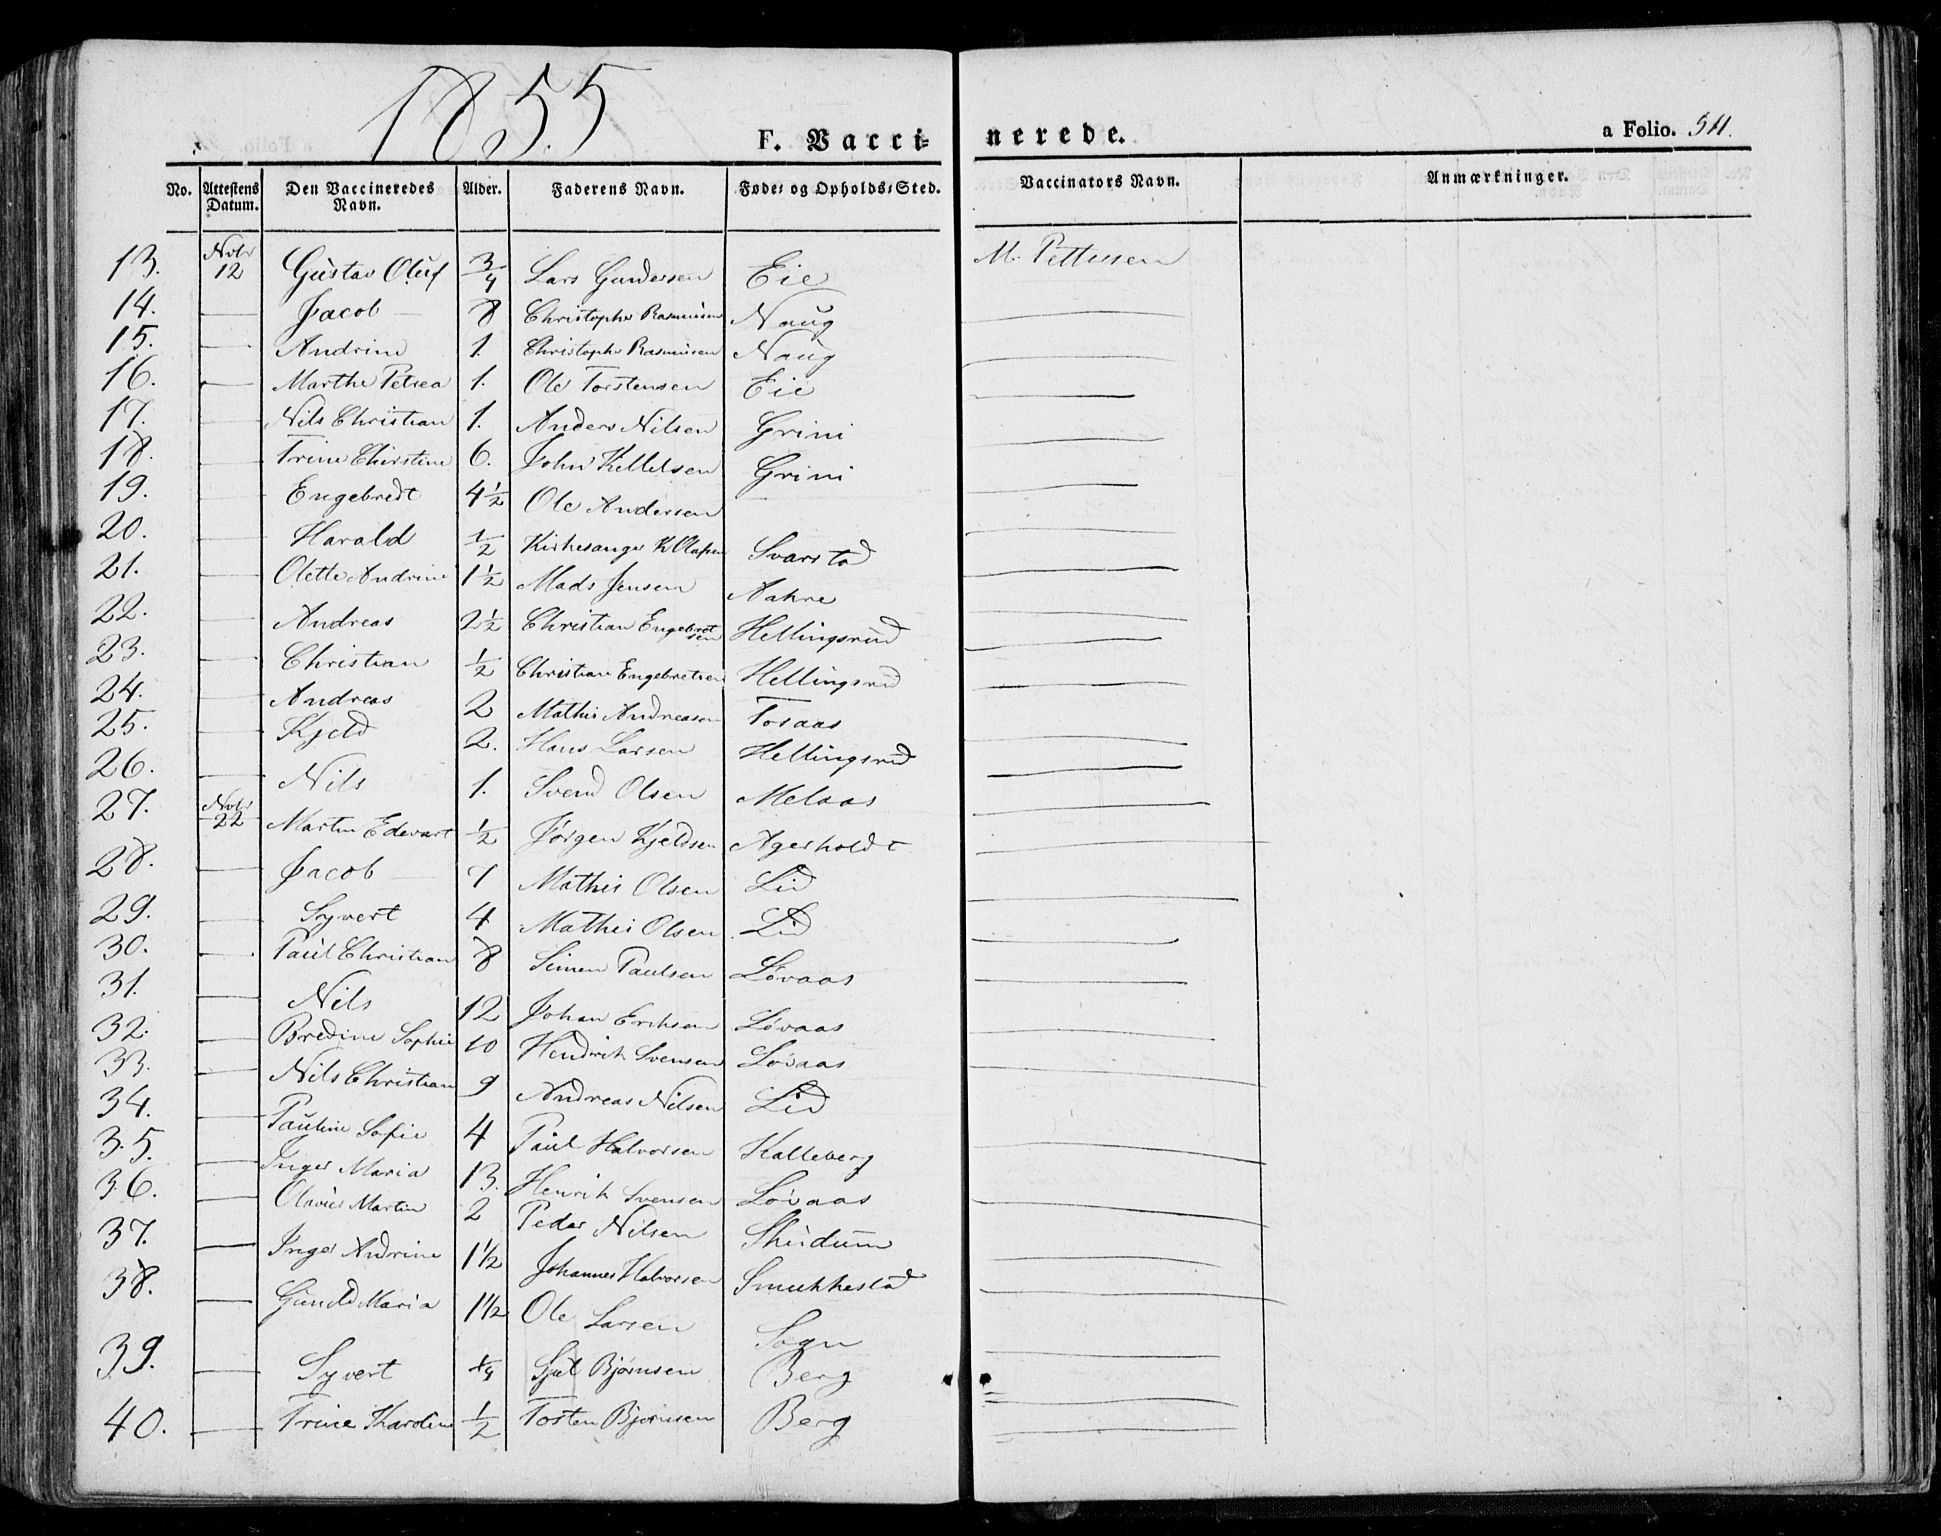 1855
F. Vaccinerede. a Folio. 511.
No. Attestens Datum. Den Vaccineredes Navn. Alder. Faderens Navn. Føde- og Opholds-Sted. Vaccinators Navn. Anmærkninger.
13. Novbr 12 Gustav Oluf 3/4 Lars Gundersen Eie M. Pettersen
14. — Jacob — 8 Christopher Rasmussen Naug —
15. — Andrine 1. Christopher Rasmussen Naug —
16. — Marthe Petrea 1. Ole Torstensen Eie —
17. — Nils Christian 1. Anders Nilsen Grini —
18. — Trine Christine 6. John Kettelsen Grini —
19. — Engebredt 4 1/2 Ole Andersen —
20. — Harald 1/2 Kirkesanger K Olafsen Svarstad —
21. — Olette Andrine 1 1/2 Mads Jensen Aakre —
22. — Andreas 2 1/2 Christian Engebretsen Hellingsrud —
23. — Christian 1/2 Christian Engebretsen Hellingsrud —
24. — Andreas 2 Mathis Andreasen Tosaas —
25. — Kjeld 2. Hans Larsen Hellingsrud —
26. — Nils 1. Svend Olsen Melaas —
27. Novbr 22 Martin Edevart 1/2 Jørgen Kjeldsen Agerholdt —
28. — Jacob — 7 Mathis Olsen Lid —
29. — Syvert 4 Mathis Olsen Lid —
30. — Paul Christian 8 Simen Paulsen Løvaas —
31. — Nils 12 Johan Eriksen Løvaas —
32. — Bredine Sophie 10 Hendrik Svensen Løvaas —
33. — Nils Christian 9 Andreas Nilsen Lid —
34. — Pauline Sofie 4 Paul Halvorsen Kalleberg —
35. — Inger Maria 13. Henrik Svensen Løvaas —
36. — Olavus Martin 2 Peder Nilsen Skudum —
37. — Inger Andrine 1 1/2 Johannes Halvorsen Smukkestad —
38. — Gunild Maria 1 1/2 Ole Larsen Sogn —
39. — Syvert 1/4 Bjørnsen Berg —
40. — Trine Karoline 1/2 Tosten Bjørnsen Berg —